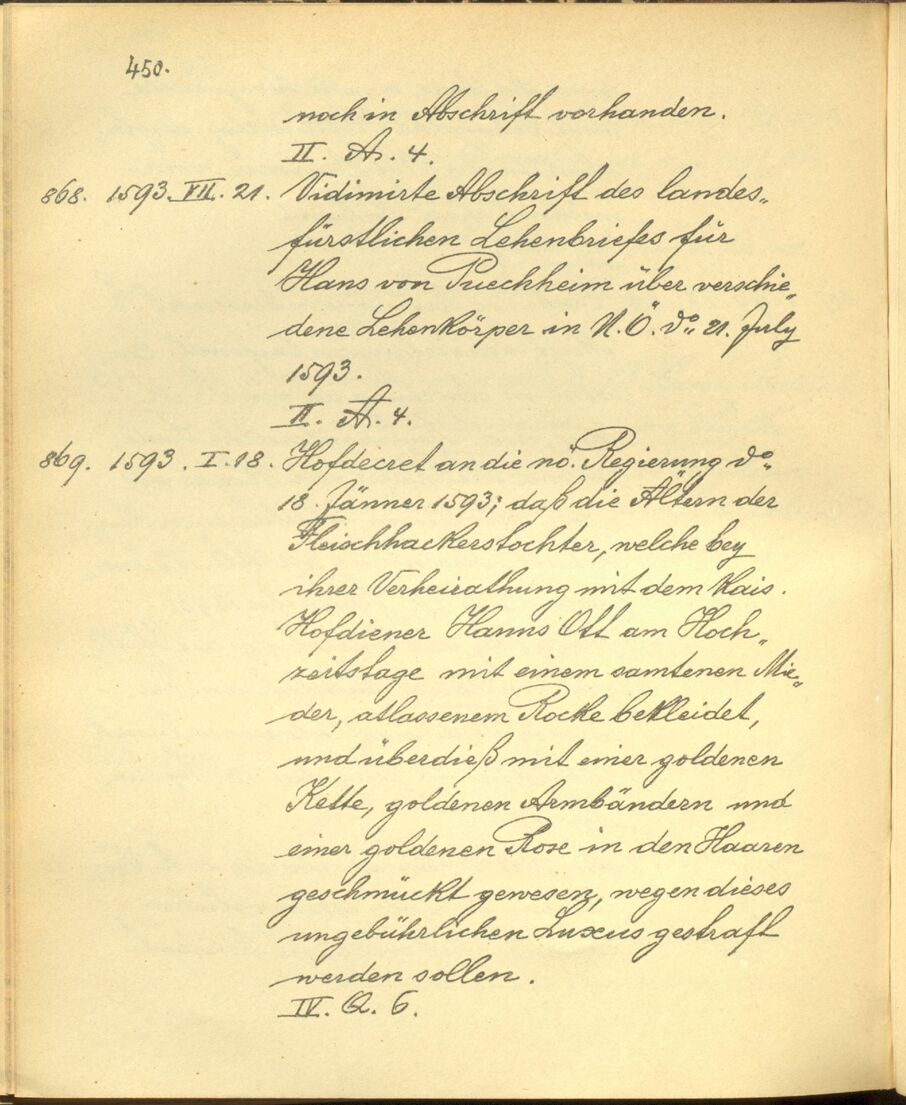 450.
noch in Abschrift vorhanden.
II. A. 4.
868. 1593. VII. 21. Vidimirte Abschrift des landes„
fürstlichen Lehenbriefes für
Hans von Puechheim über verschie„
dene Lehenkörper in N. Ö. do 21. July
1593.
II. A. 4.
869. 1593. I. 18. Hofdecret an die nö. Regierung do
18. Jänner 1593; daß die Ältern der
Fleischhackerstochter, welche bey
ihrer Verheirathung mit dem Kais.
Hofdiener Hanns Ott am Hoch„
zeitstage mit einem samtenen Mie„
der, atlassenem Rocke bekleidet,
und überdieß mit einer goldenen
Kette, goldenen Armbändern und
einer goldenen Rose in den Haaren
geschmückt gewesen, wegen dieses
ungebührlichen Luxus gestraft
werden sollen.
IV. Q. 6.